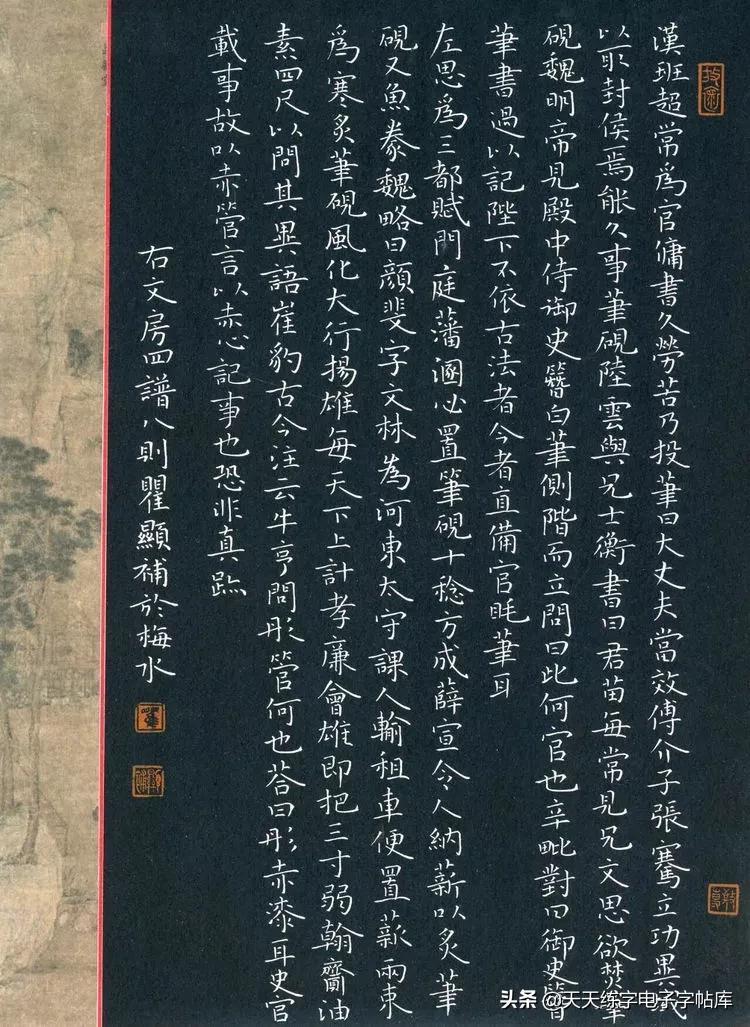 漢班超常爲官傭書久勞苦乃投筆曰大丈夫當效傅介子張騫立功異域
以取封侯焉能久事筆硯陸雲與兄士衡書曰君苗每常見兄文思欲焚筆
硯魏明帝見殿中侍御史簪白筆側階而立問曰此何官也辛毗對曰御史簪
筆書過以記陛下不依古法者今者直備官眊筆耳
左思爲三都賦門庭藩溷必置筆硯十稔方成薛宣令人納薪以炙筆
硯又魚豢魏略曰顔斐字文林為河東太守課人輸租車便置薪兩束
爲寒炙筆硯風化大行揚雄每天下上計孝廉會雄即把三寸弱翰齎油
素四尺以問其異語崔豹古今注云牛亨問彤管何也荅曰彤赤漆耳史官
載事故以赤管言以赤心記事也恐非真跡
右文房四譜八則瞿顯補於梅水
头条@天天练字电子字帖库